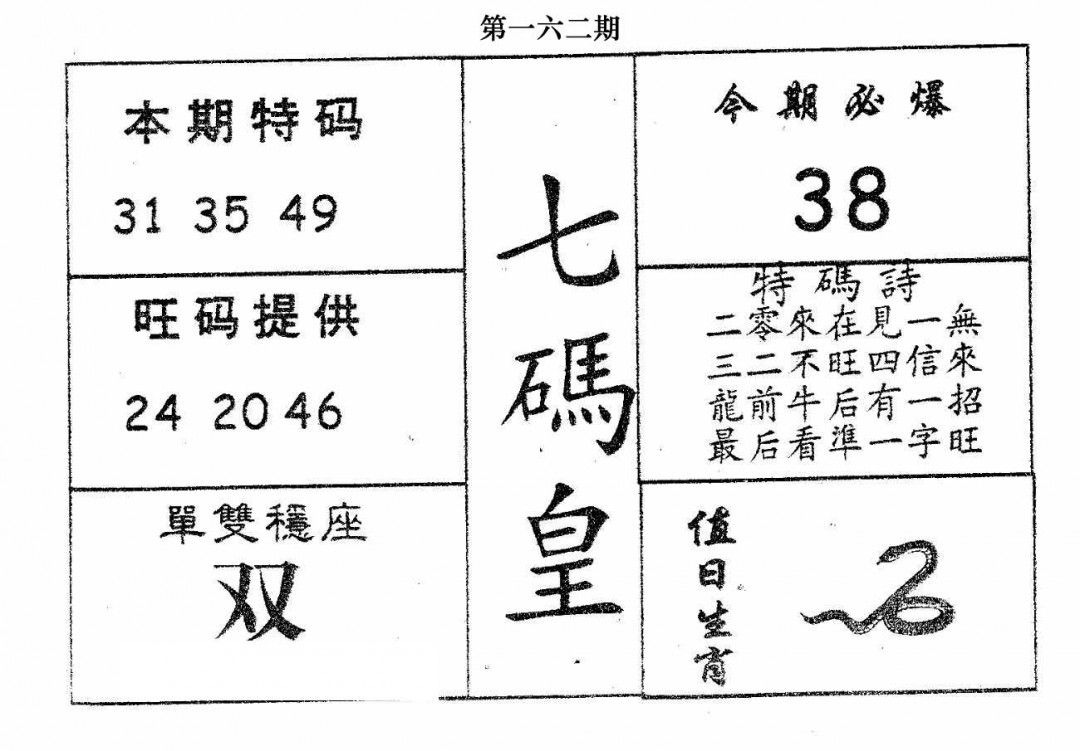 第一六二期
本期特码
31 35 49
旺码提供
24 20 46
單雙穩座
双
七碼皇
今期必爆
38
特碼詩
二零來在見一無
三二不旺四信來
龍前牛后有一招
最后看準一字旺
值日生肖